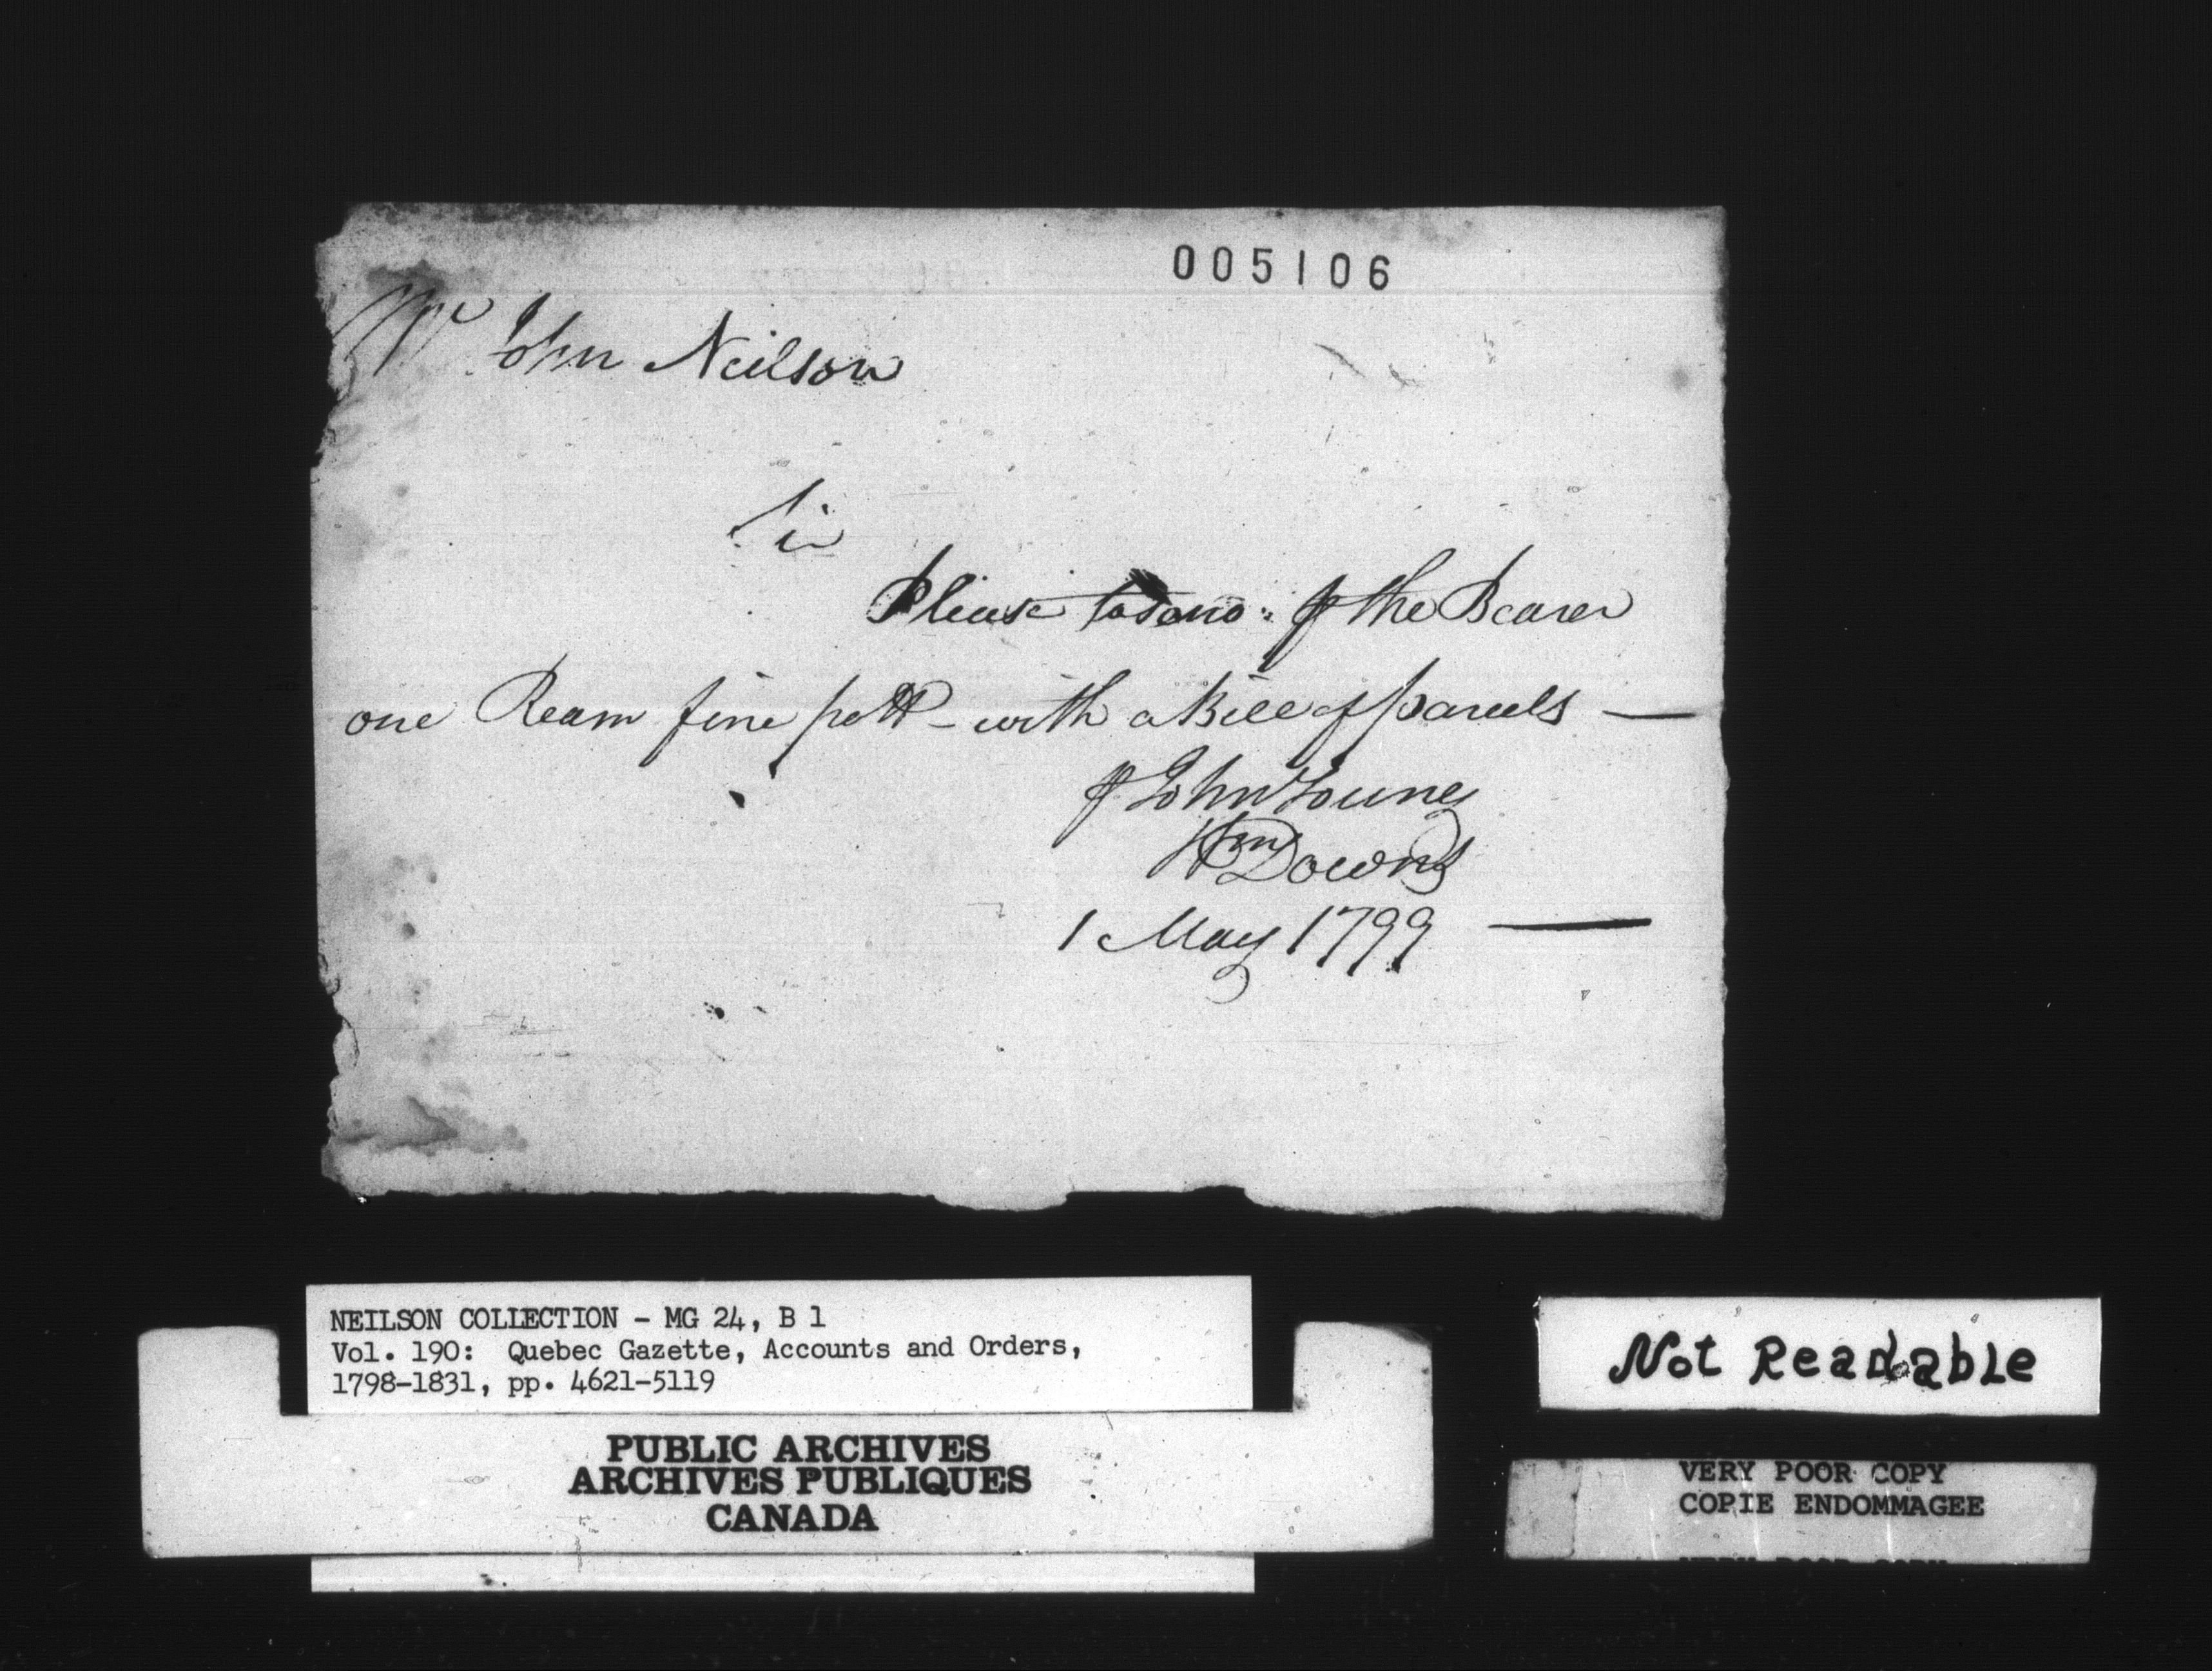 005106
Mr John Neilson
Sir
Please to send ⅌ the Bearer
one Ream fine pott - with a Bill of parcels —
⅌ John Young
Wm Downs
1 May 1799 —
NEILSON COLLECTION - MG 24, B 1
Vol. 190: Quebec Gazette, Accounts and Orders,
1798-1831, pp. 4621-5119
PUBLIC ARCHIVES
ARCHIVES PUBLIQUES
CANADA
Not Readable
VERY POOR COPY
COPIE ENDOMMAGEE